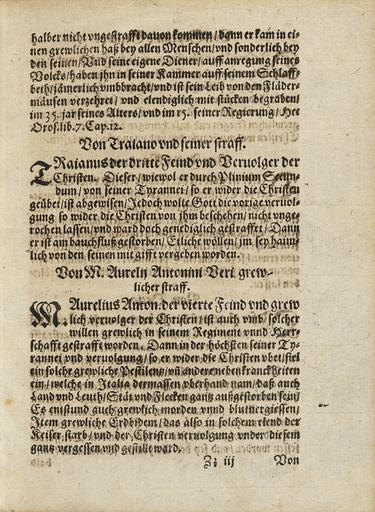 halber nicht vngestrafft dauon kommen / dann er kam in ei-
nen grewlichen haß bey allen Menschen / vnd sonderlich bey
den seinen / Vnd seine eigene Diener / auff anregung seines
Volcks / haben jhn in seiner Kammer auff seinem Schlaff-
beth / jämerlich vmbbracht / vnd ist sein Leib von den Fläder-
mäusen verzehret / vnd elendiglich mit stücken begraben /
im 35. jar seines Alters / vnd im 15. seiner Regierung / Hec
Oros. lib. 7. Cap. 12.
Von Traiano vnd seiner straff.
TRaianus der dritte Feind vnd Veruolger der
Christen. Dieser / wiewol er durch Plinium Secun-
dum / von seiner Tyrannei / so er wider die Christen
geübet / ist abgewisen / Jedoch wolte Gott die vorige veruol-
gung so wider die Christen von jhm beschehen / nicht vnge-
rochen lassen / vnd ward doch genediglich gestraffet / Dann
er ist am bauchfluß gestorben / Etliche wöllen / jm sey haim-
lich von den seinen mit gifft vergeben worden.
Von M. Aurelij Antonini Veri grew-
licher straff.
M. Aurelius Anton. der vierte Feind vnd grew
lich veruolger der Christen / ist auch vmb solcher
willen grewlich in seinem Regiment vnnd Herr-
schafft gestrafft worden. Dann in der höchsten seiner Ty-
rannei vnd veruolgung / so er wider die Christen vbet / fiel
ein solche grewliche Pestilentz / vñ andere neben kranckheiten
ein / welche in Italia dermassen vberhand nam / daß auch
Land vnd Leuth / Stät vnd Flecken gantz außgestorben sein /
Es enstund auch grewlich morden vnnd blutuergiessen /
Item grewliche Erdbidem / das also in solchem elend der
Keiser starb / vnd der Christen veruolgung vnder diesem
gantz vergessen vnd gestillt ward.
Zz iij Von